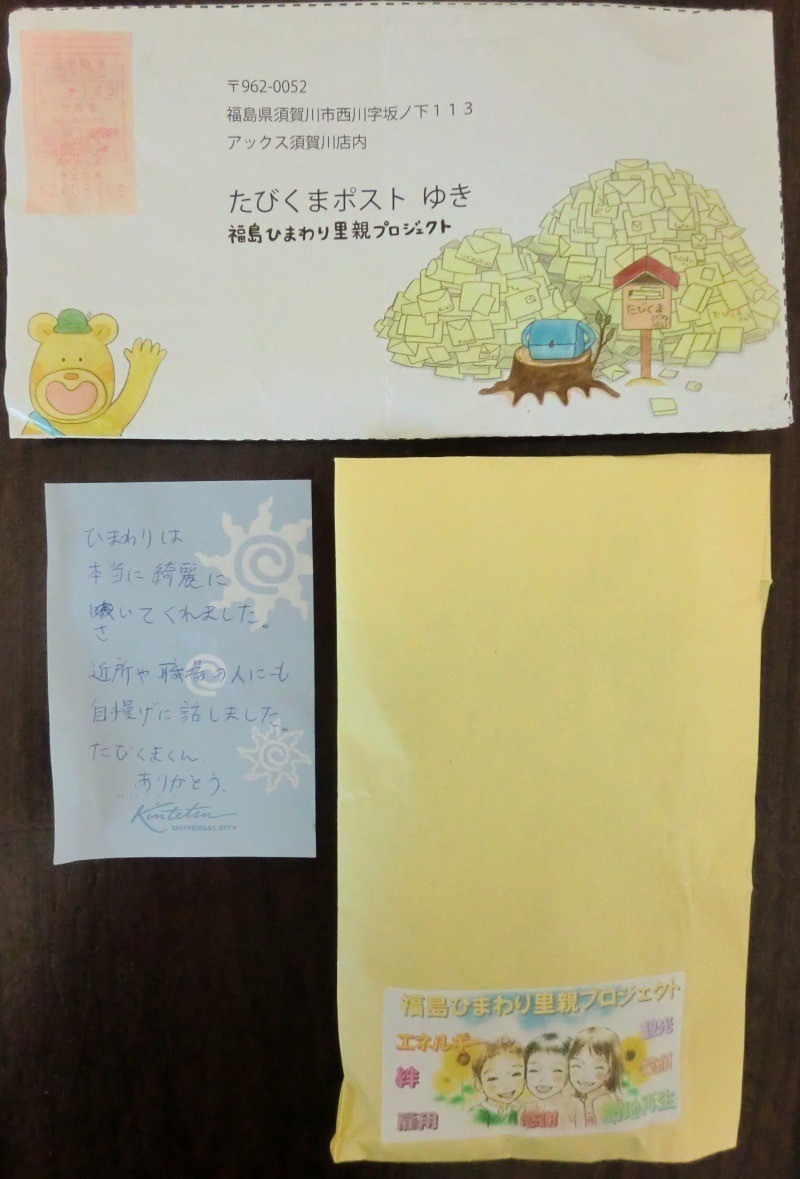 〒962-0052
福島県須賀川市西川字坂ノ下１１３
アックス須賀川店内
たびくまポスト ゆき
福島ひまわり里親プロジェクト
たびくま
ひまわりは
本当に綺麗に
さいてくれました。
近所や職場の人にも
自慢げに話しました。
たびくまくん
ありがとう、
HOTEL
Kintetsu
UNIVERSAL CITY
福島ひまわり里親プロジェクト
エネルギー
観光
絆
雇用